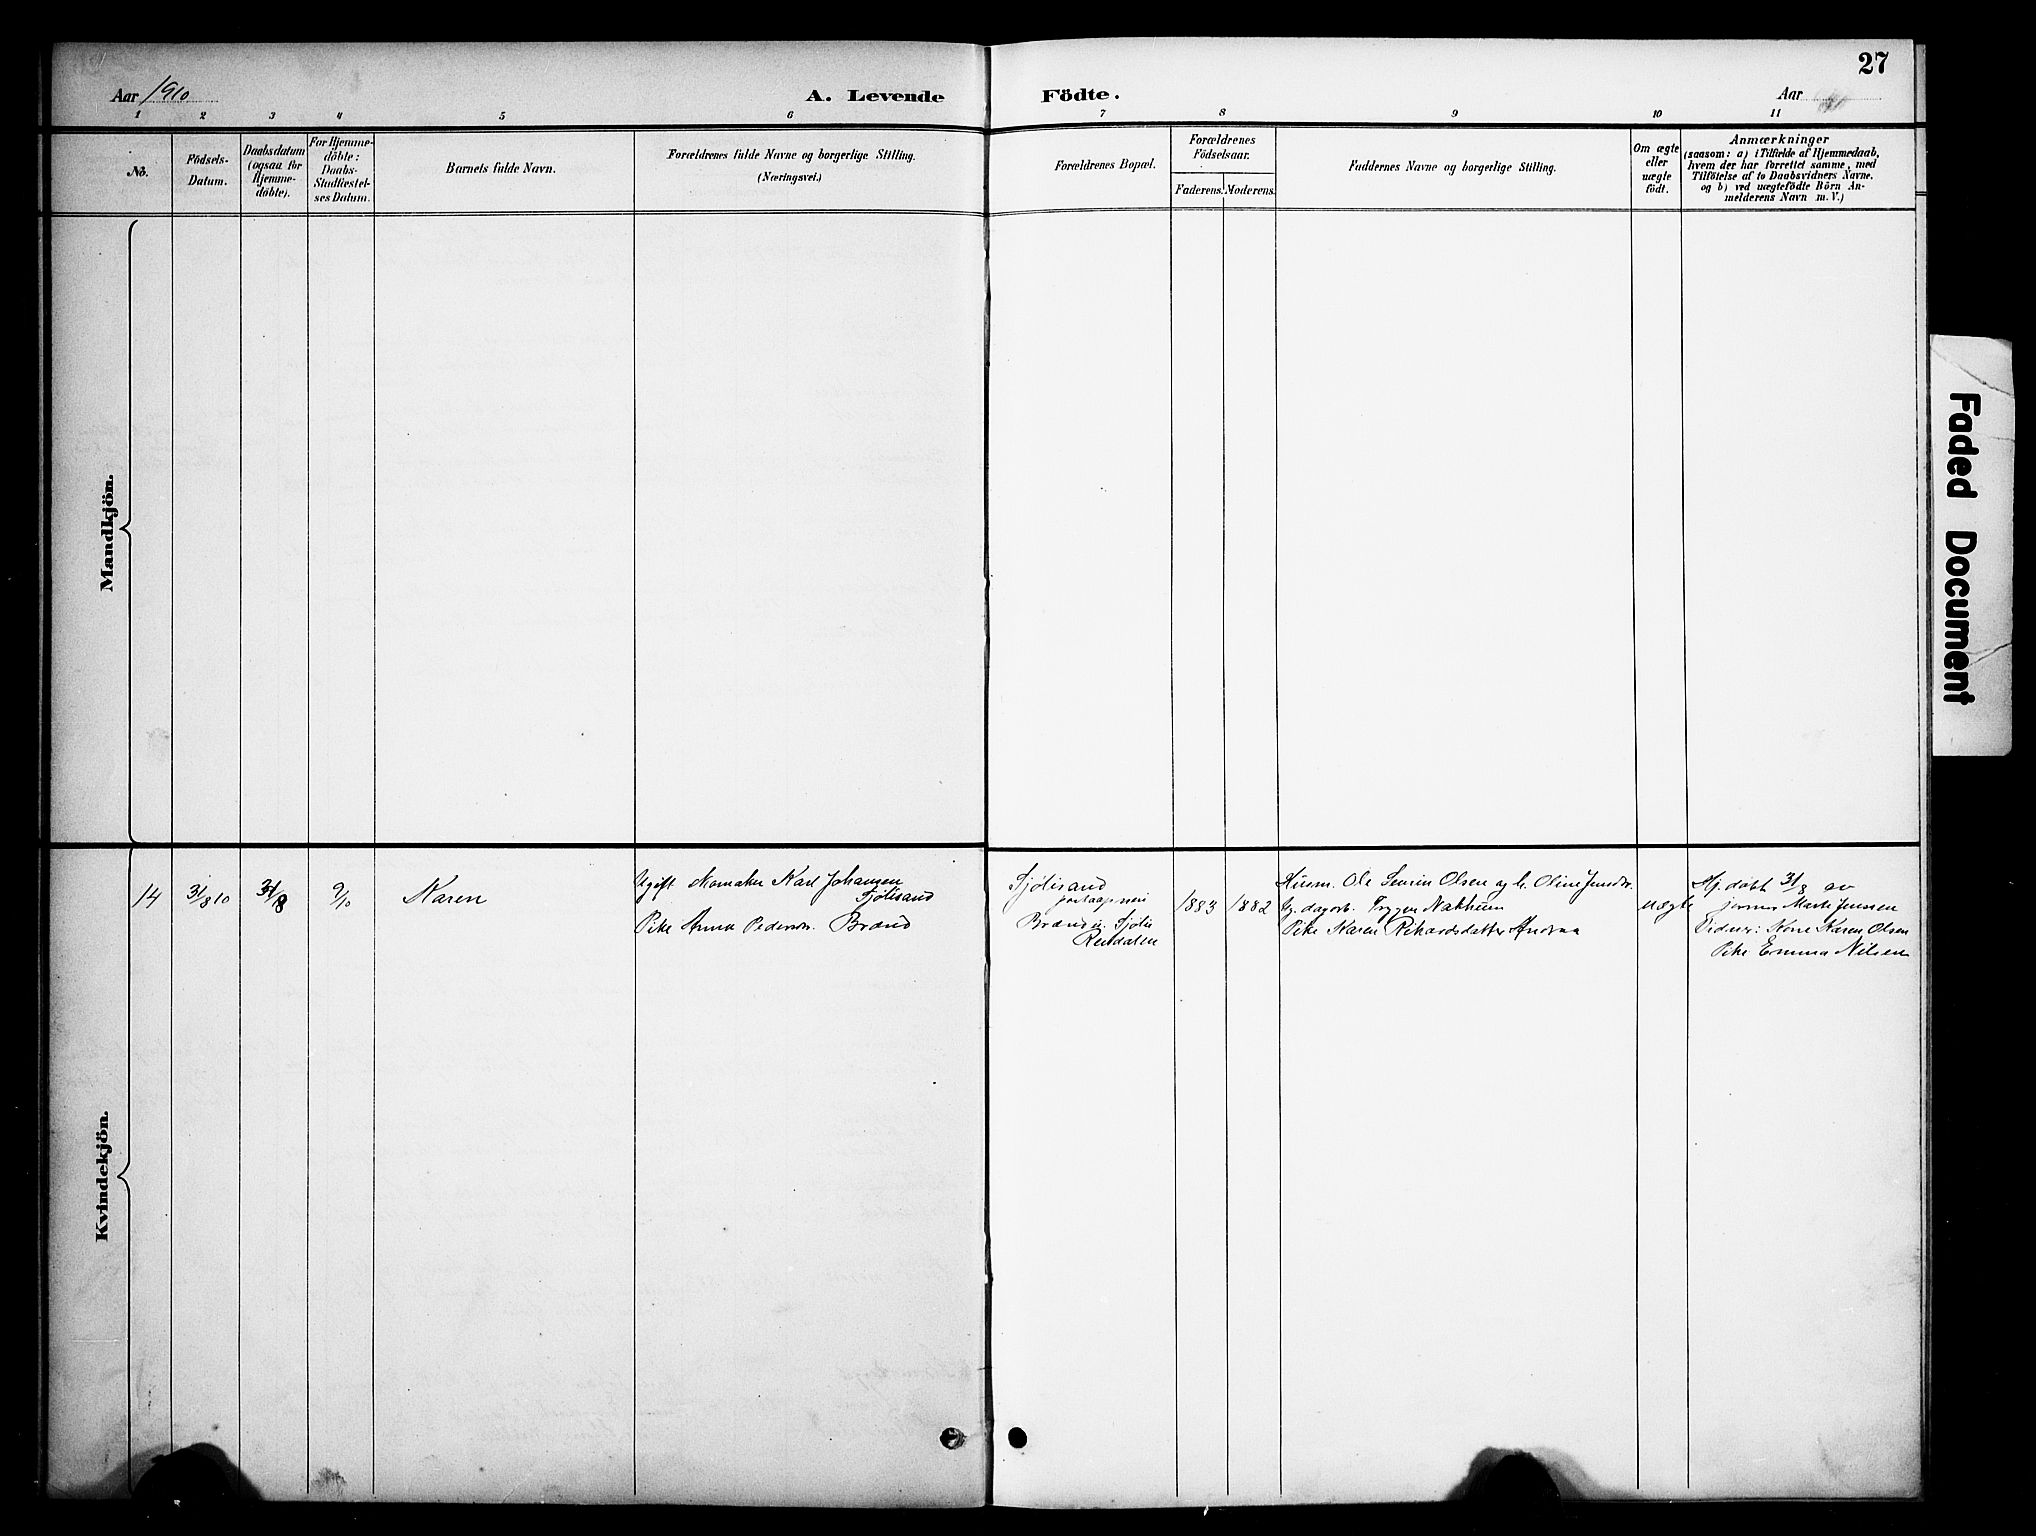 27
Aar 1910
A. Levende
Födte.
Aar
1 2 3 4 5 6 7 8 9 10 11
No.
Födsels-
Datum.
Daabsdatum
(ogsaa for
Hjemme-
döbte).
For Hjemme-
döbte:
Daabs-
Stadfæstel-
ses Datum.
Barnets fulde Navn.
Forældrenes fulde Navne og borgerlige Stilling.
(Næringsvei.)
Forældrenes Bopæl.
Forældrenes
Födselsaar.
Faderens. Moderens.
Faddernes Navne og borgerlige Stilling.
Om ægte
eller
uægte
födt.
Anmærkninger
(saasom: a) i Tilfælde af Hjemmedaab,
hvem der har forrettet samme, med
Tilföielse af to Daabsvidners Navne,
og b) ved uægtefödte Börn An-
melderens Navn m. V.)
Mandkjön.
Kvindekjön.
14
31/8 10
31/8
9/10
Karen
Ugift Karl Johansen
Sjölisand
Pike Anna Pedersdr. Brænd
Sjölisand
Brænd i Sjöli
Rendalen
1883
1882
Husm. Ole Olsen og h. Oline Jensdr.
Ug. dagarb. Trygve Nakkum
Pike Karen Rikardsdatter
uægte
Hj. döbt 31/8 av
jormor Marte Jenssen
Vidner: Kone Karen Olsen
Pike Emma Nilsen
Faded Document